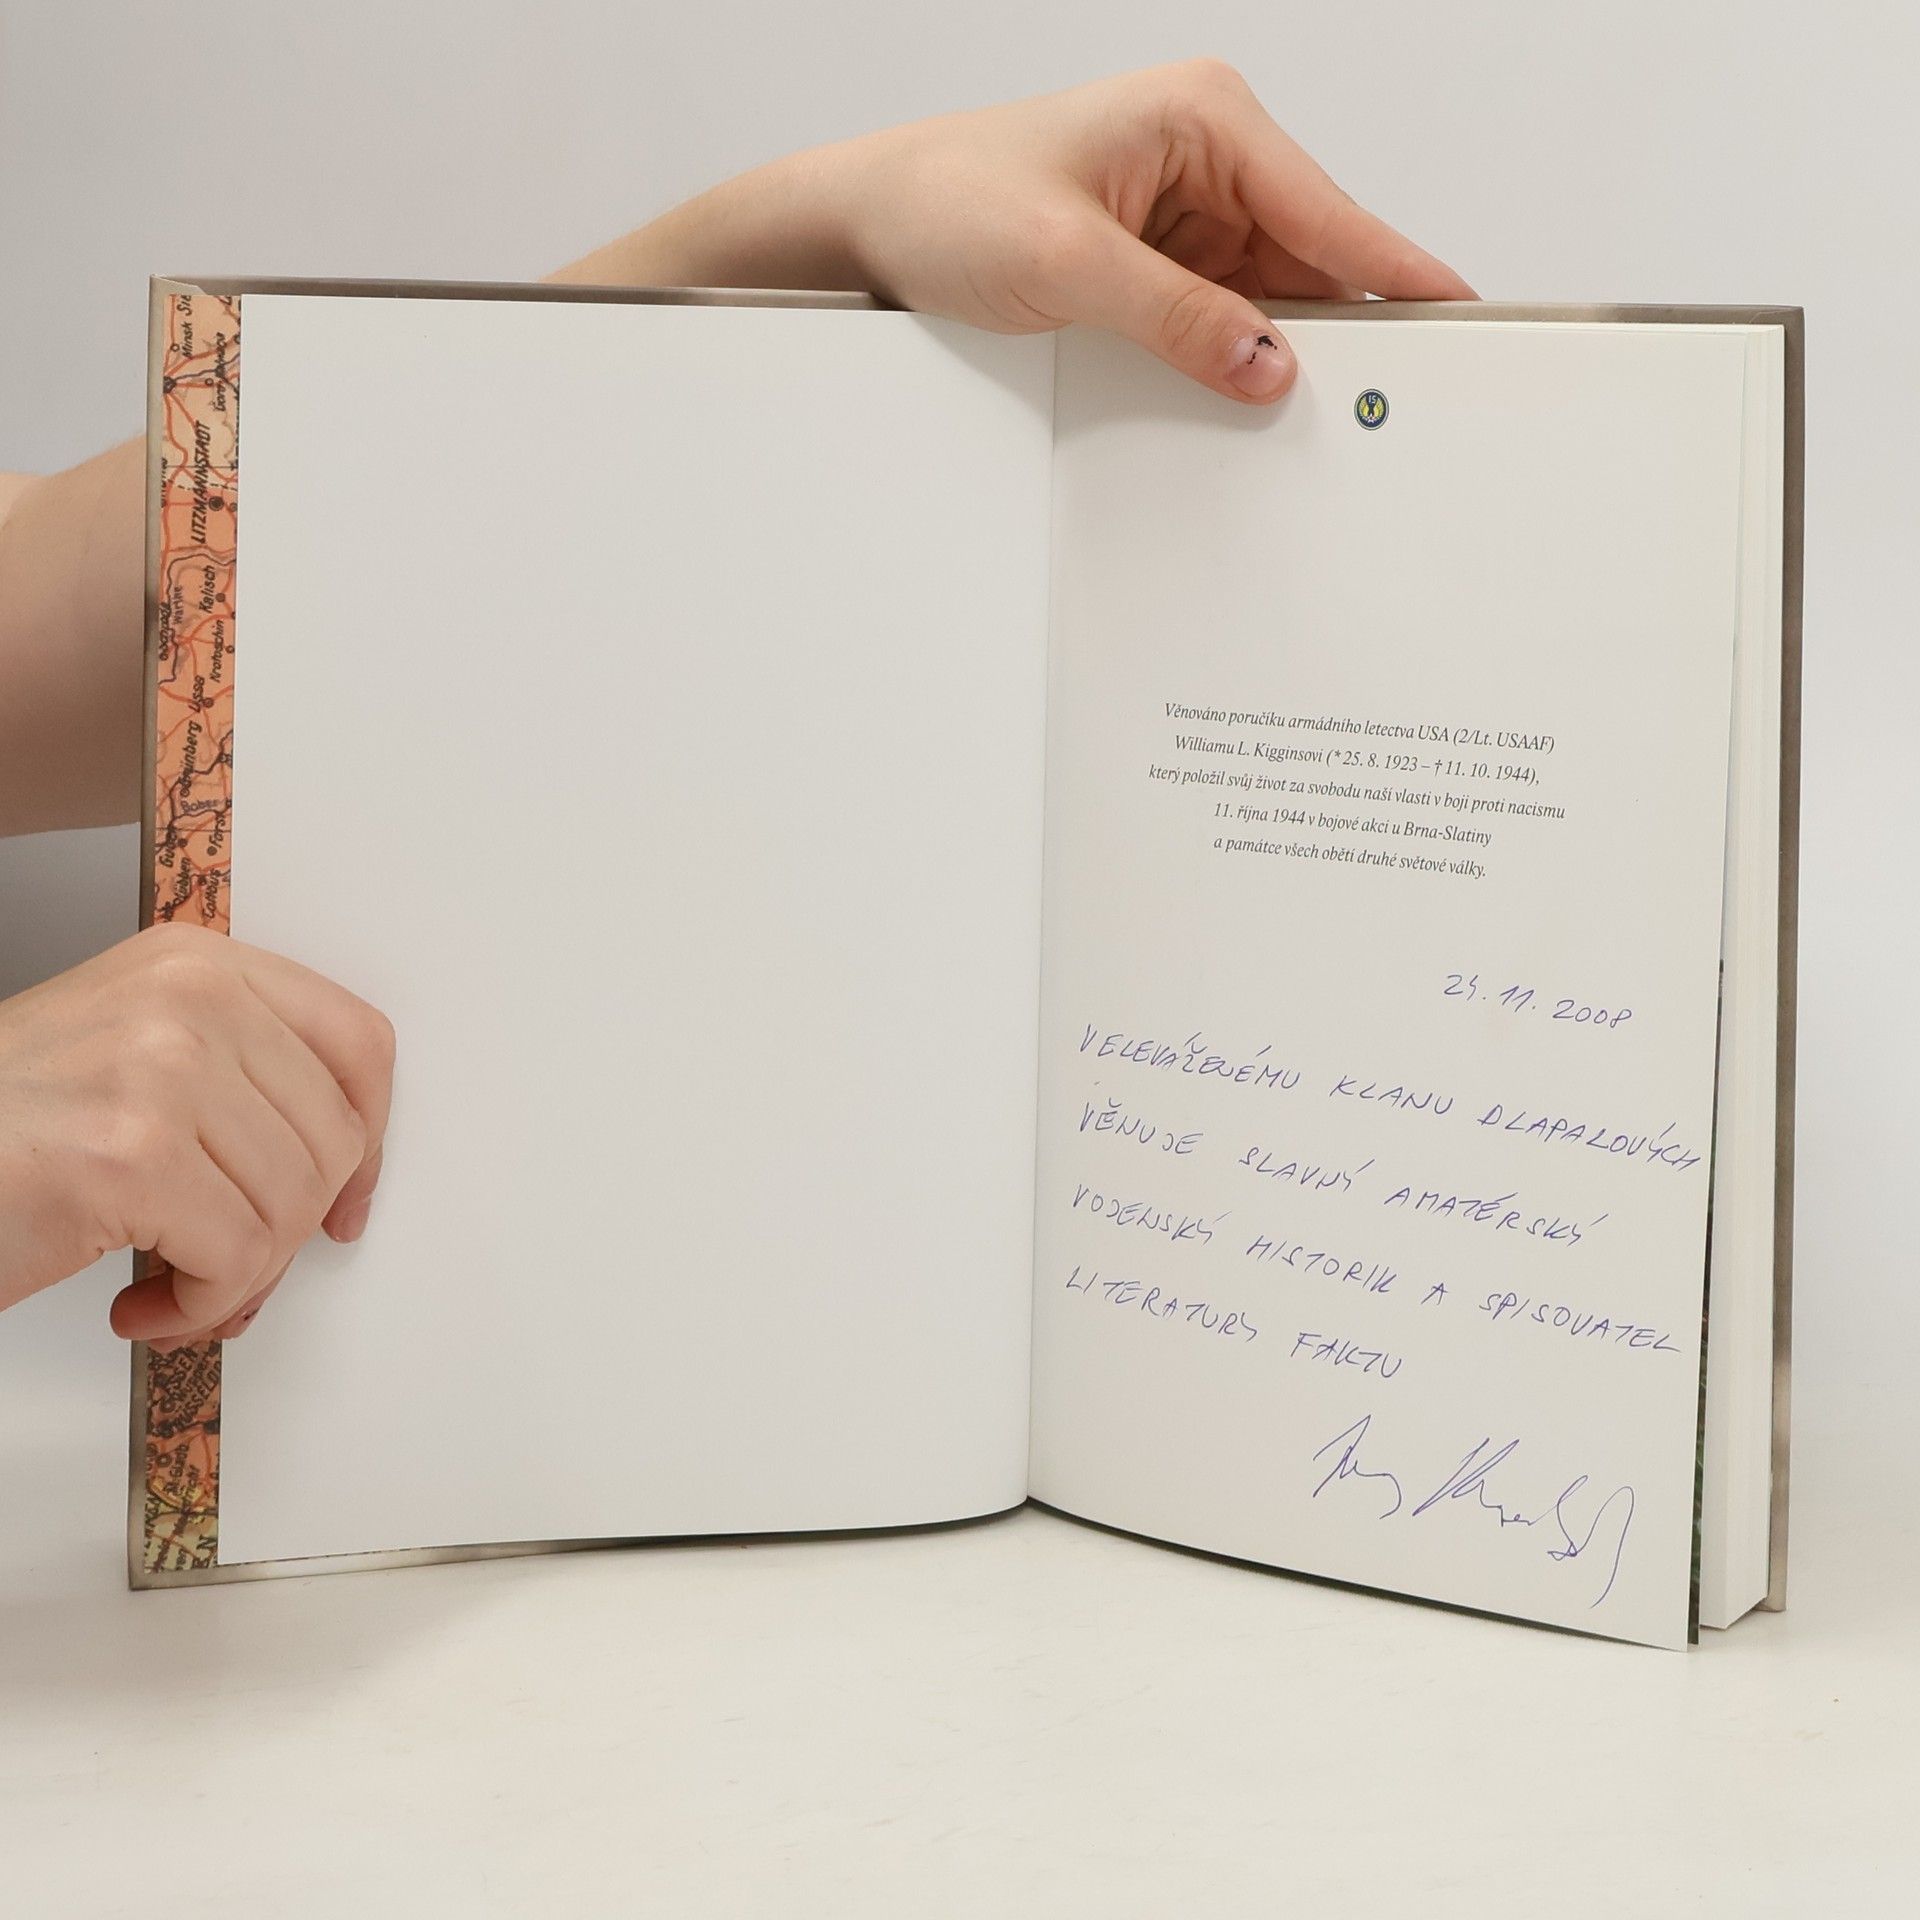 Minsk
LITZMANNSTADT
Kalisch
Warthe
Krotoschin
Grünberg
Forst
Lübben
15
Věnováno poručíku armádního letectva USA (2/Lt. USAAF)
Williamu L. Kigginsovi (* 25. 8. 1923 – † 11. 10. 1944),
který položil svůj život za svobodu naší vlasti v boji proti nacismu
11. října 1944 v bojové akci u Brna-Slatiny
a památce všech obětí druhé světové války.
24. 11. 2008
VELEVÁŽENÉMU KLANU DLAPALOVÝCH
VĚNUJE SLAVNÝ AMATÉRSKÝ
VOJENSKÝ HISTORIK A SPISOVATEL
LITERATURY FAKTU